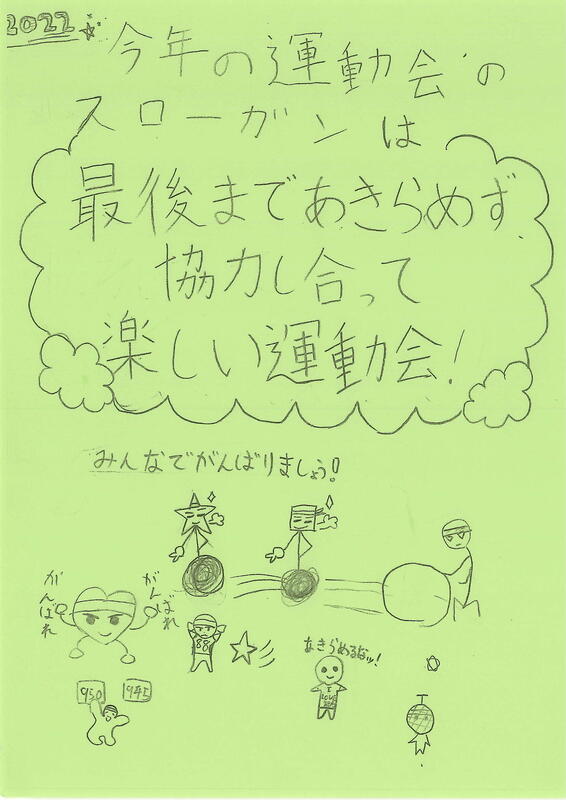 2022
今年の運動会の
スローガンは
最後まであきらめず、
協力し合って
楽しい運動会!
みんなでがんばりましょう!
がんばれ
がんばれ
88
あきらめるなッ!
950
945
I
LOVE